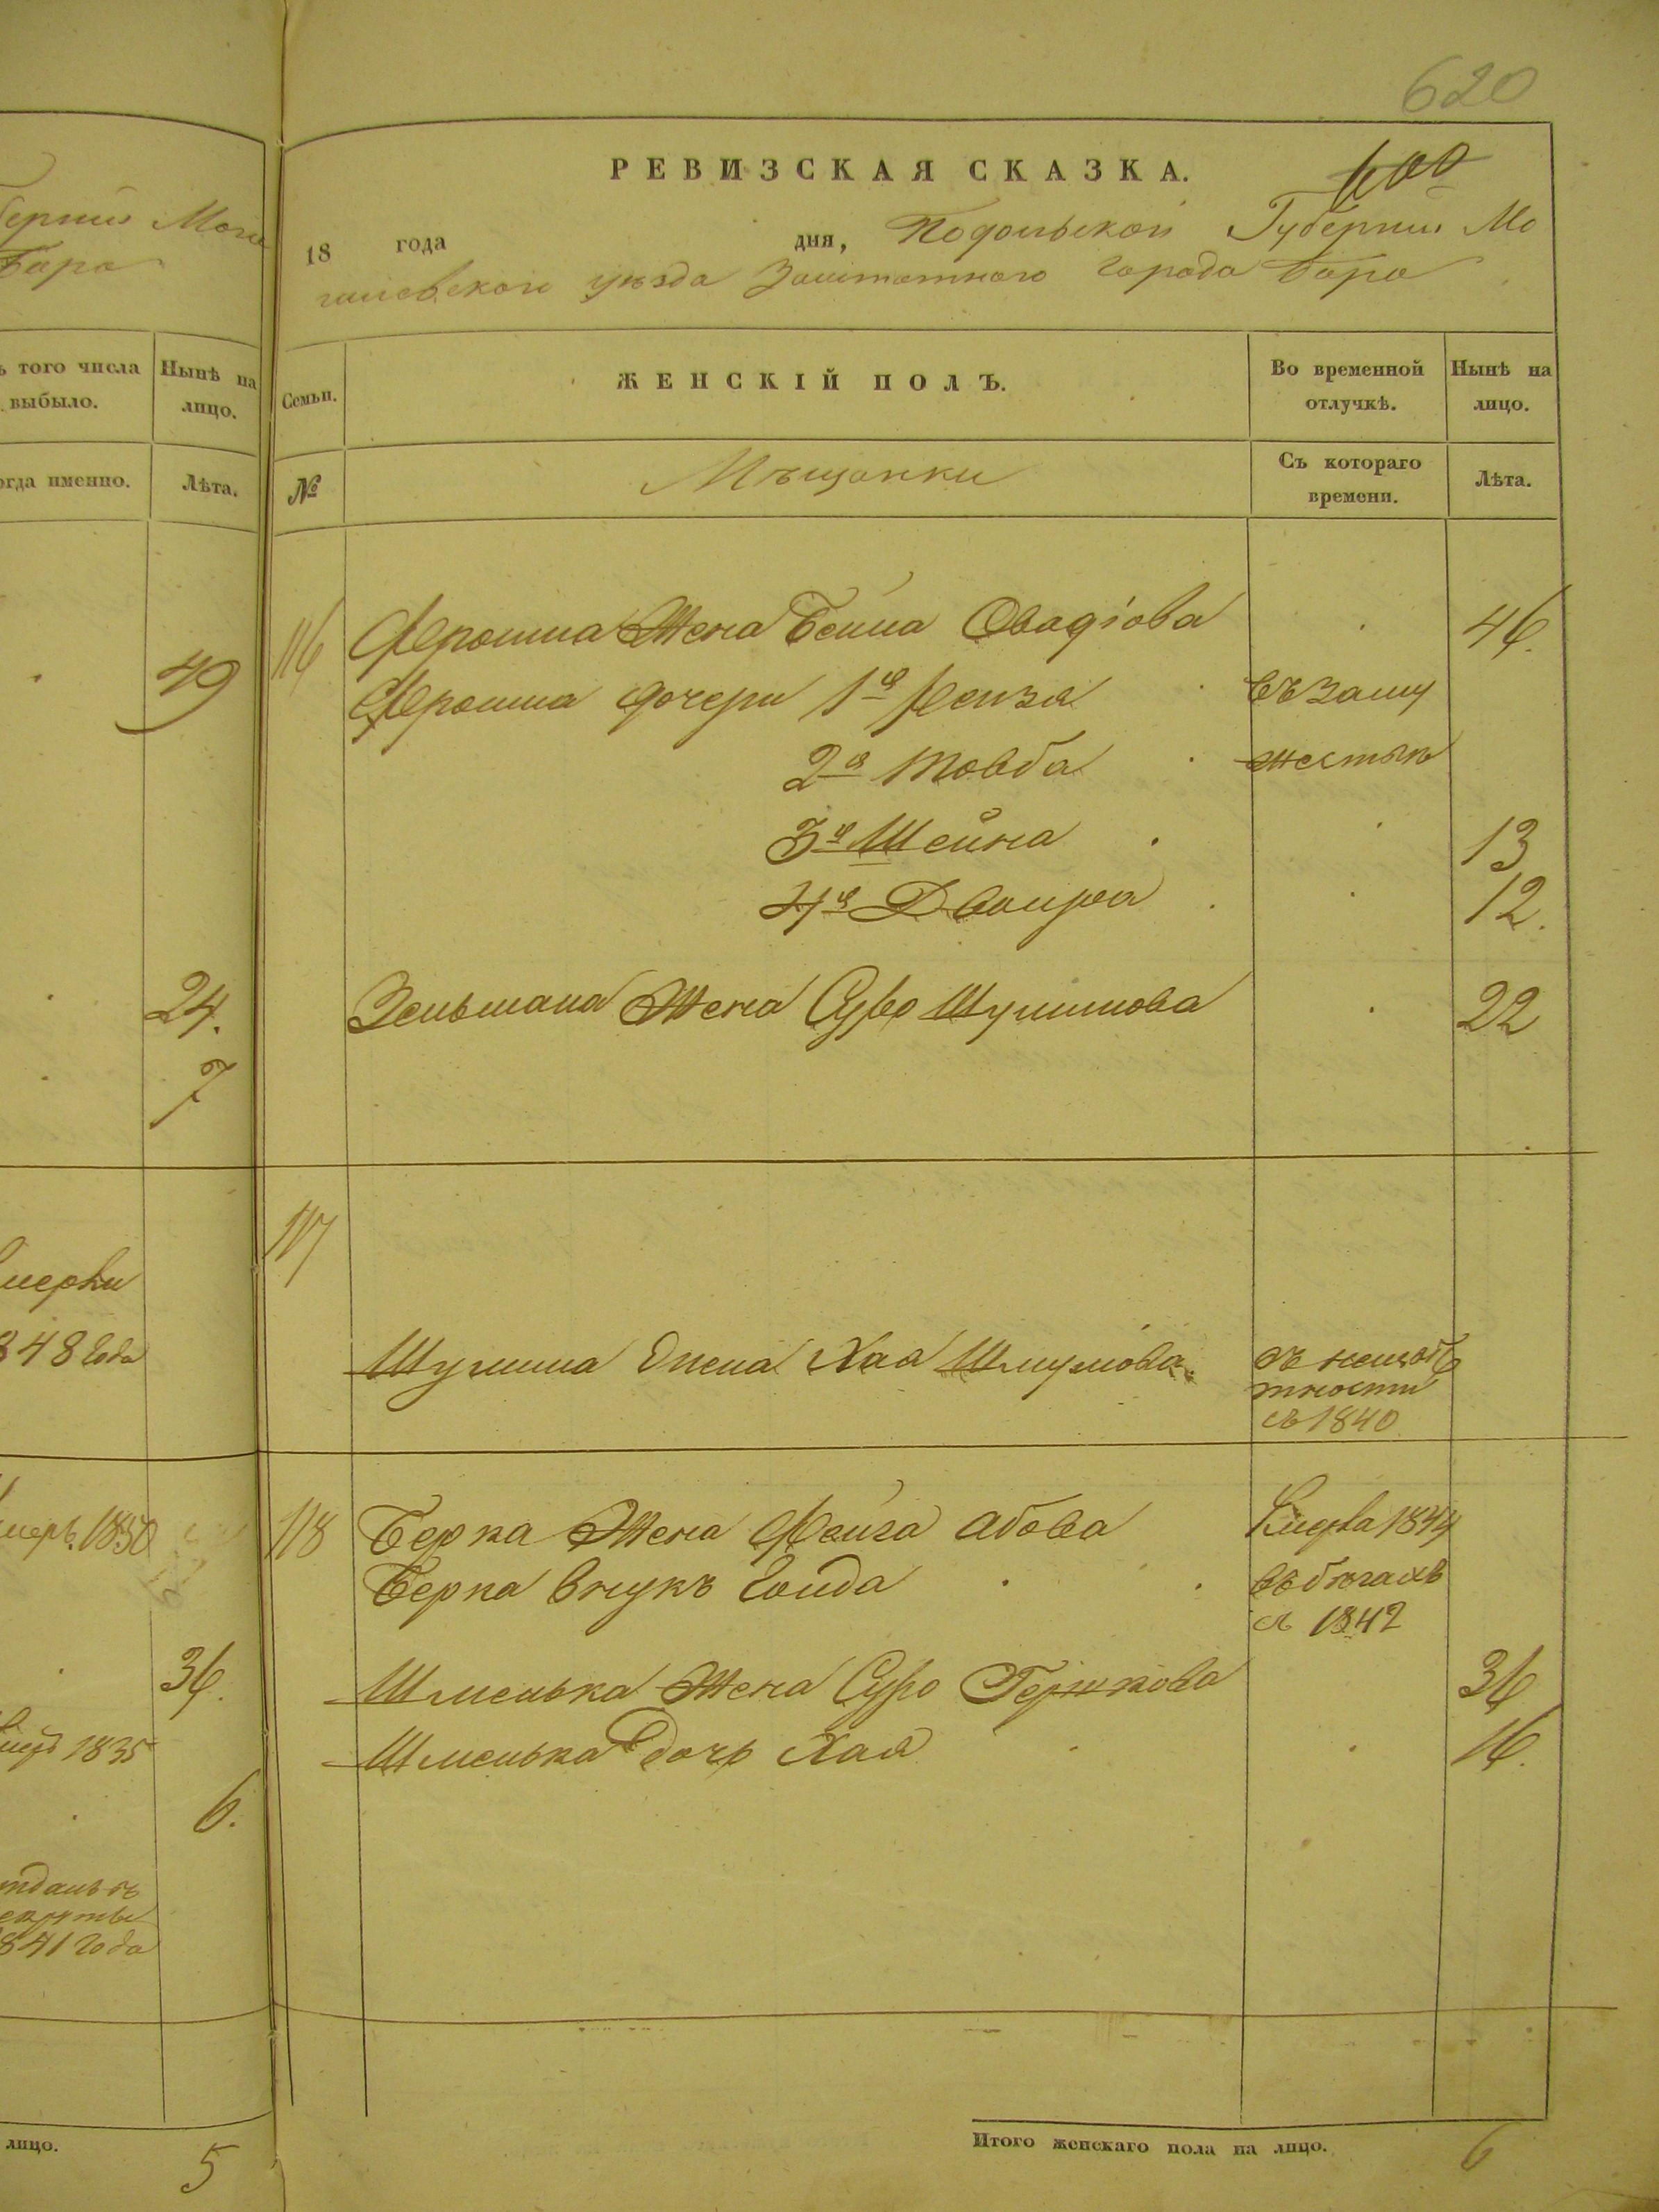 620
РЕВИЗСКАЯ СКАЗКА.
600
18 года дня, Подольской Губернии Мо
гилевского уѣзда Заштатного города Бара
берніи Моги
Бара
ъ того числа
выбыло.
Нынѣ на
лицо.
огда именно.
Лѣта.
Семьи.
ЖЕНСКІЙ ПОЛЪ.
Во временной
отлучкѣ.
Нынѣ на
лицо.
№
Мѣщанки
Съ котораго
времени.
Лѣта.
49
116 Фроима Жена Бейла Овадіова 46.
Фроима дочери 1я Рейзя въ заму
2я Товба жествѣ
3я Шейна 13
4я Двойра 12.
24.
Зельмана Жена Сура Шулимова 22
7
117
мерли
848 года
Шулима Жена Хая Шмулёва въ неизвѣ
тности
съ 1840
мерѣ 1850
118 Берка Жена Фейга Абова Умерла 1844
Берка Внукъ Гойда въ бѣгахъ
съ 1842
36.
Шмелька Жена Суро Гершкова 36
1835
Шмелька Дочь Хая 16.
6.
тданъ въ
екруты
841 года
лицо.
5
Итого женскаго пола на лицо. 6